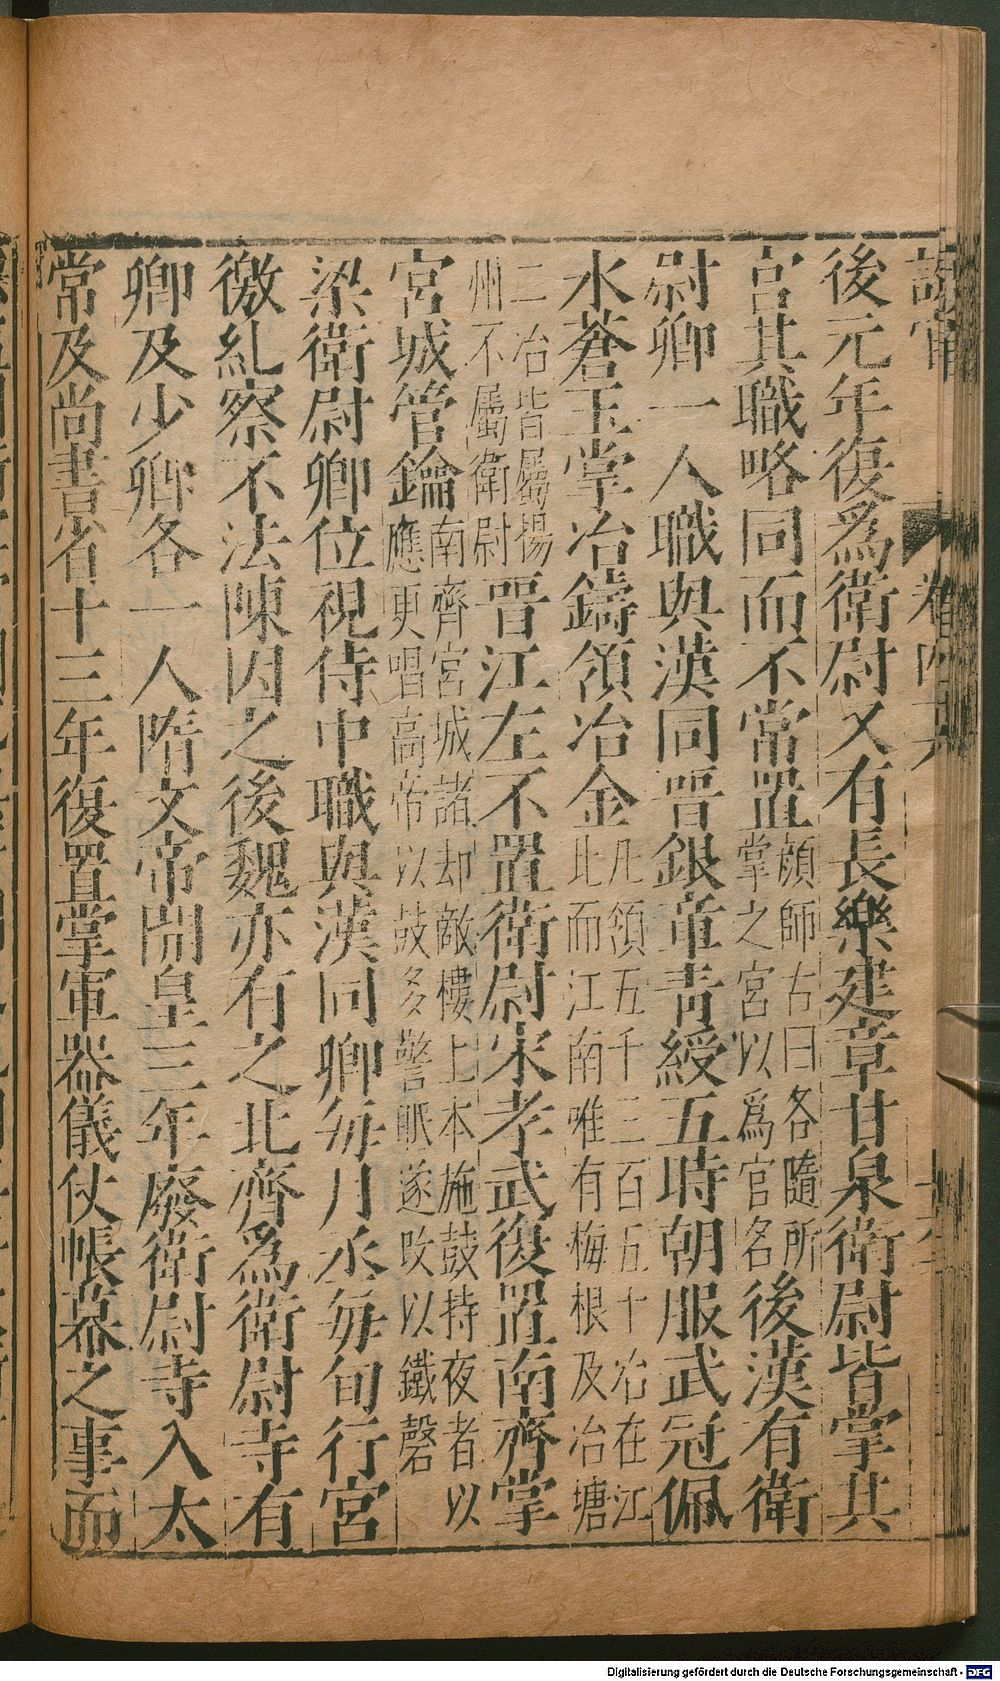 職官 卷四十六
後元年復爲衛尉又有長樂建章甘泉衛尉皆掌其
宮其職略同而不常置顏師古曰各隨所掌之宮以爲官名後漢有衛
尉卿一人職與漢同晉銀章青綬五時朝服武冠佩
水蒼玉掌冶鑄領冶金凡領五千三百五十冶在江北而江南唯有梅根及冶塘
二冶皆屬揚州不屬衛尉晉江左不置衛尉宋孝武復置南齊掌
宮城管鑰南齊宮城諸却敵樓上本施鼓持夜者以應更唱高帝以鼓多警眠遂改以鐵磬
梁衛尉卿位視侍中職與漢同卿每月丞每旬行宮
徼糺察不法陳因之後魏亦有之北齊爲衛尉寺有
卿及少卿各一人隋文帝開皇三年廢衛尉寺入太
常及尚書省十三年復置掌軍器儀仗帳幕之事而
Digitalisierung gefördert durch die Deutsche Forschungsgemeinschaft - DFG